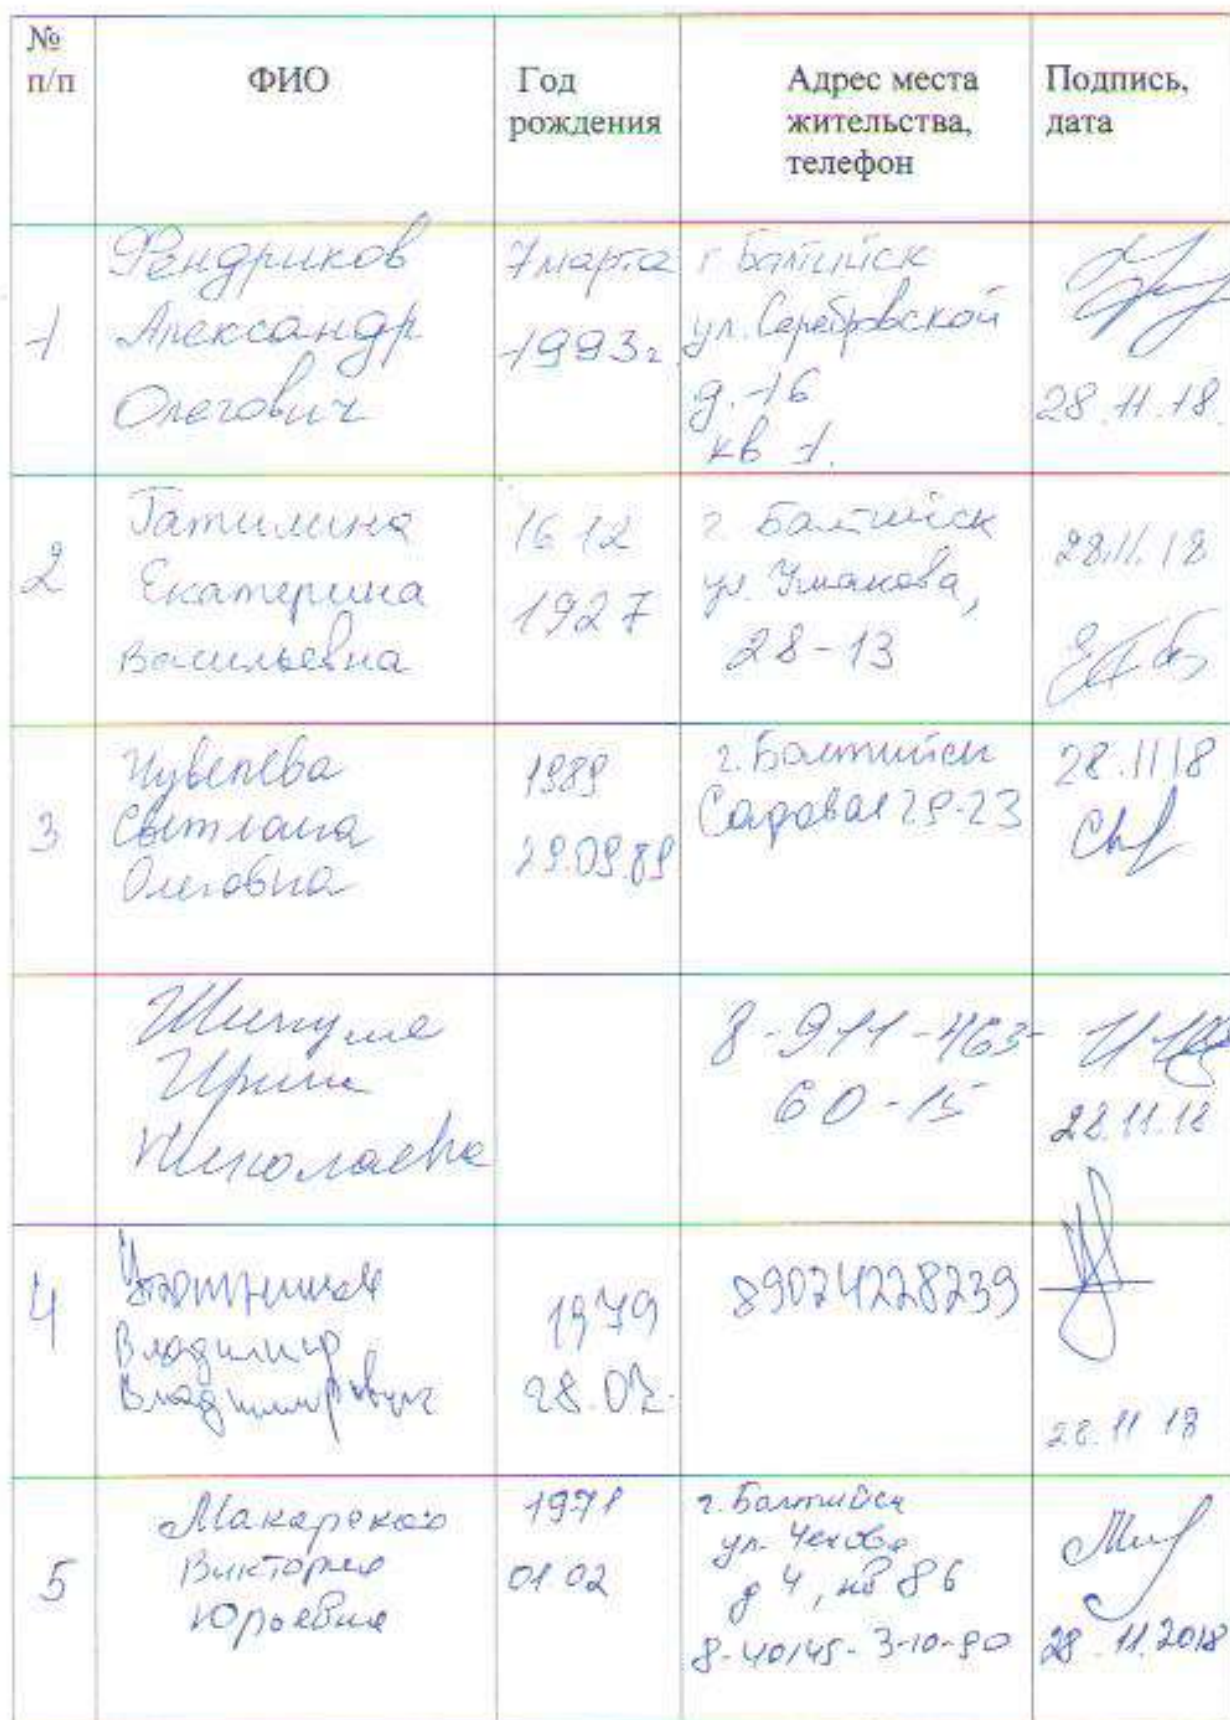 № п/п
ФИО
Год рождения
Адрес места жительства, телефон
Подпись, дата
1
Фендриков
Александр
Олегович
7 марта
1993г
г Балтийск
ул. Серебровской
д. 16
кв 1.
28.11.18.
2
Татилина
Екатерина
Васильевна
16 12
1927
г Балтийск
ул. Ушакова,
28-13
28.11.18
3
Светлана
Олеговна
1989
29.09.89
г. Балтийск
Садовая 29-23
28.11.18
Ирина
Николаевна
8-911-463-
60-15
28.11.18
4
Владимир
Владимирович
1979
28.07.
89024228239
28.11 18
5
Макарская
Виктория
Юрьевна
1971
01.02
г. Балтийск
ул. Чехова
д 4, кв 86
8-40145-3-10-90
28.11.2018